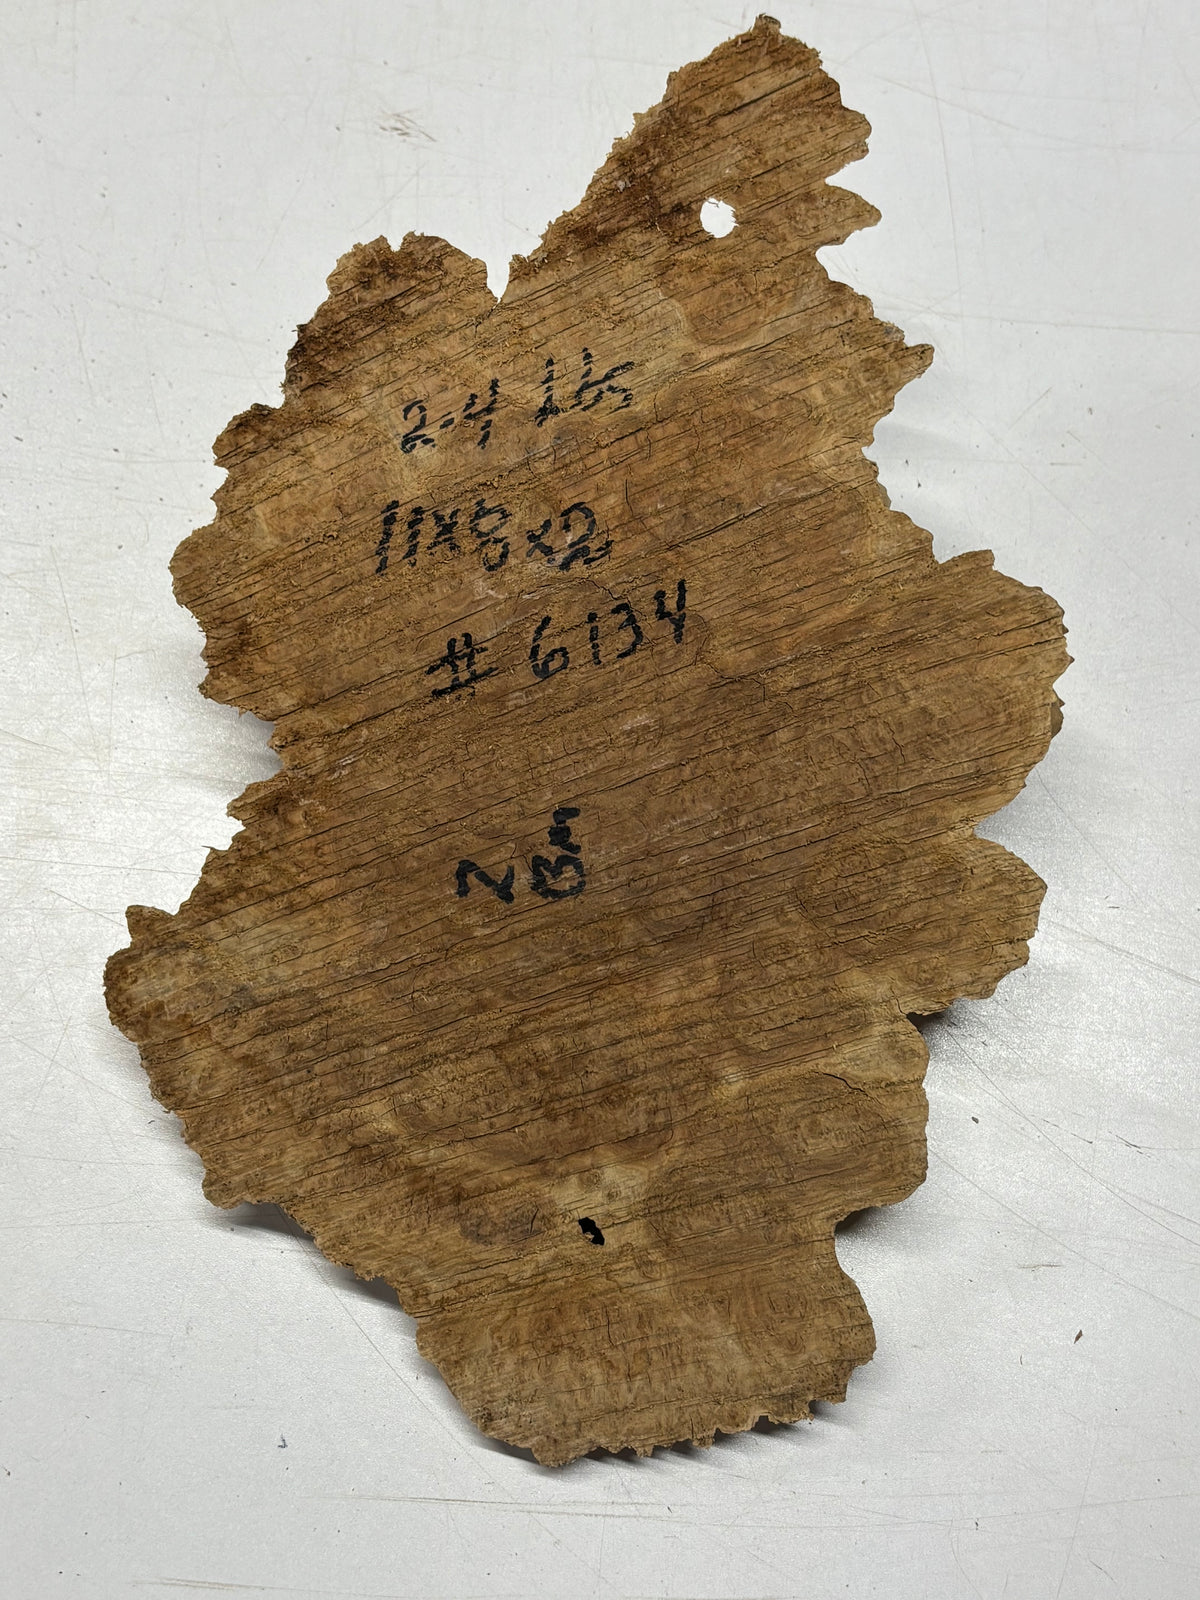 2.4 lbs
11x8x2
# 6134
2
Bm